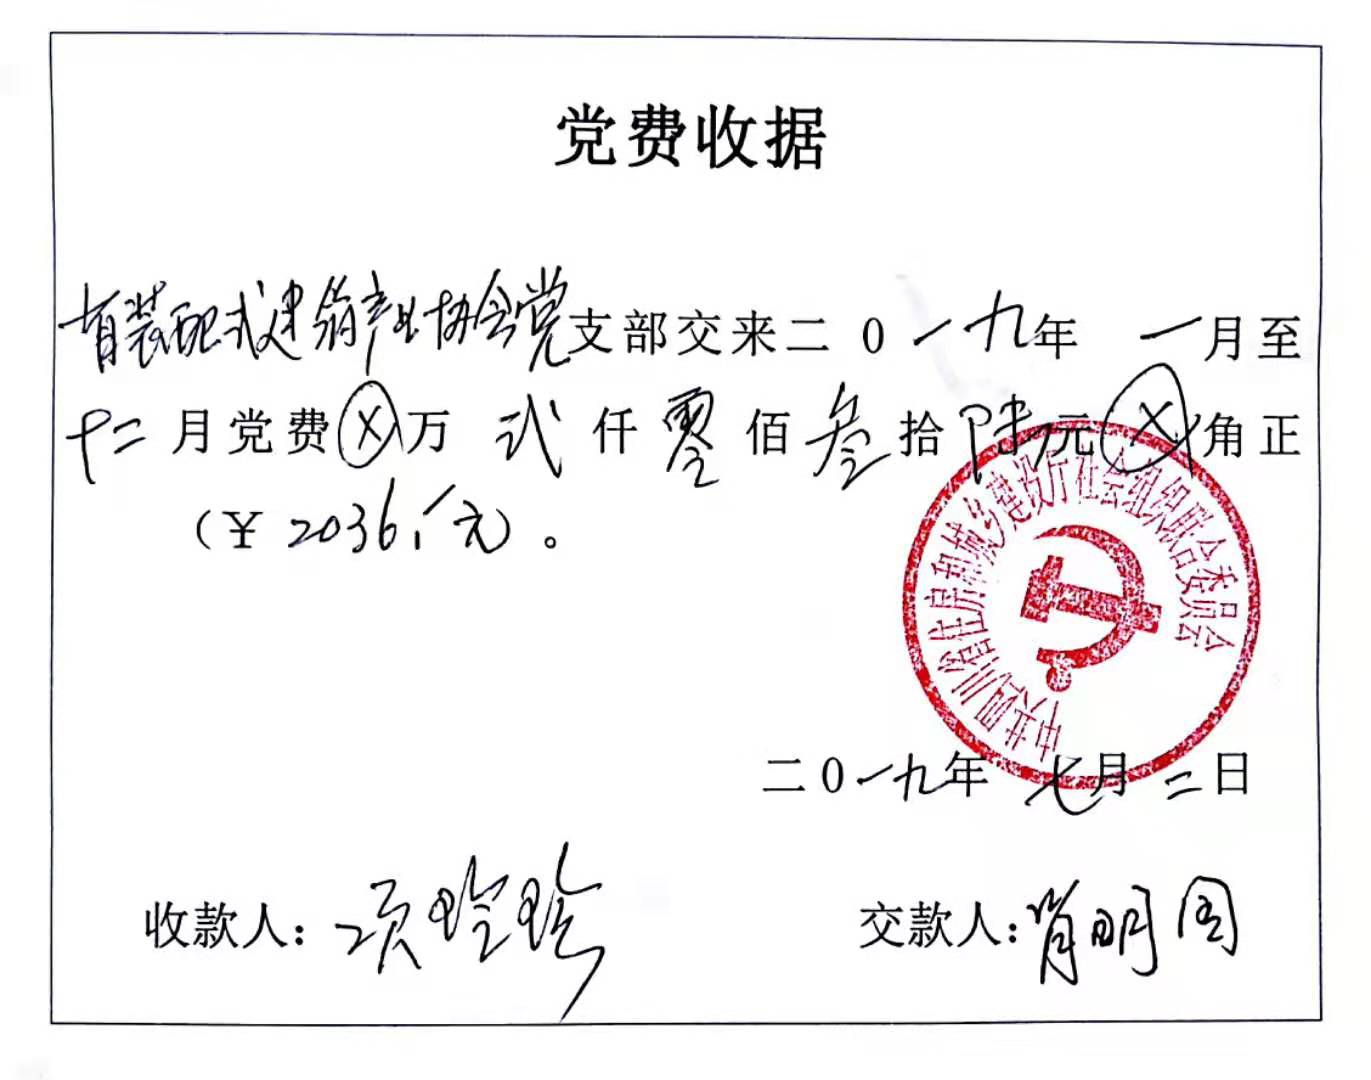 党费收据
省装配式建筑产业协会党支部交来二0一九年 一月至
十二月党费Ⓧ万 贰 仟 零 佰 叁 拾 陆 元Ⓧ角正
（￥2036.-元）。
中共四川省住房和城乡建设厅社会组织联合委员会
二0一九年 七月 二日
收款人：项玲玲
交款人：肖明